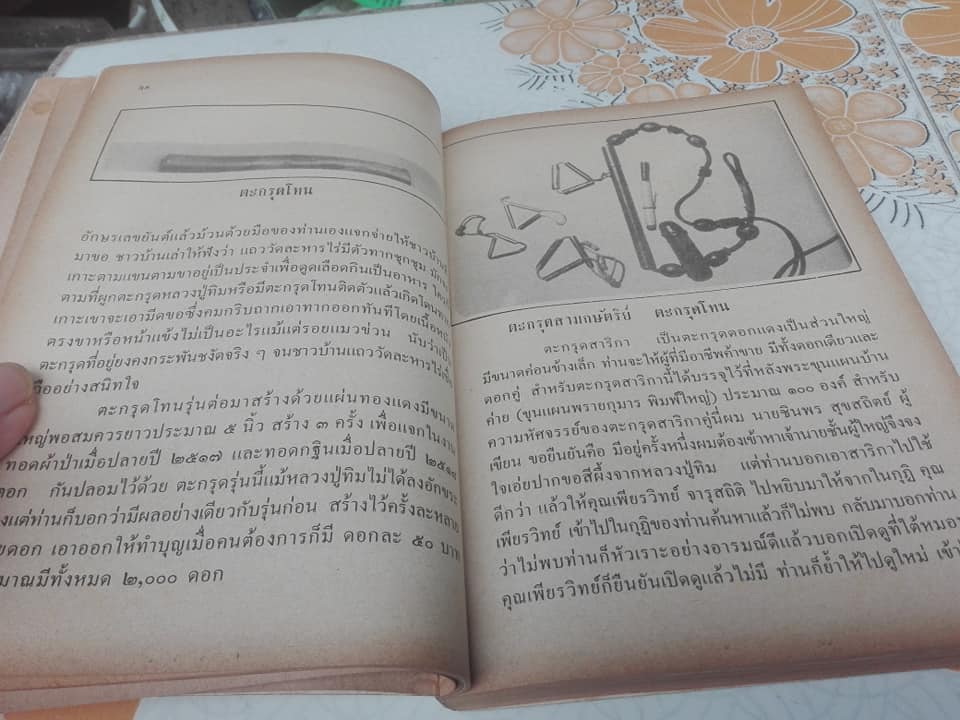 ๖๑
ตะกรุดโทน
อักษรเลขยันต์แล้วม้วนด้วยมือของท่านเองแจกจ่ายให้ชาวบ้าน
มาขอ ชาวบ้านเล่าให้ฟังว่า แถววัดละหารไร่มีตัวทากชุกชุม
เกาะตามแขนตามขาอยู่เป็นประจำเพื่อดูดเลือดกินเป็นอาหาร
ตามที่ผูกตะกรุดหลวงปู่ทิมหรือมีตะกรุดโทนติดตัวแล้วเกิดโดน
เกาะเขาจะเอามีดขอซึ่งคมกริบถากเอาทากออกทันทีโดยเนื้อหนัง
ตรงขาหรือหน้าแข้งไม่เป็นอะไรแม้แต่รอยแมวข่วน นับว่าเป็น
ตะกรุดที่อยู่ยงคงกระพันชงัดจริง ๆ จนชาวบ้านแถววัดละหารไร่
ถืออย่างสนิทใจ
ตะกรุดโทนรุ่นต่อมาสร้างด้วยแผ่นทองแดงมีขนาด
ใหญ่พอสมควรยาวประมาณ ๕ นิ้ว สร้าง ๓ ครั้ง เพื่อแจกในงาน
ทอดผ้าป่าเมื่อปลายปี ๒๕๑๗ และทอดกฐินเมื่อปลายปี
ดอก กันปลอมไว้ด้วย ตะกรุดรุ่นนี้แม้หลวงปู่ทิมไม่ได้ลงอักขระ
แต่ท่านก็บอกว่ามีผลอย่างเดียวกับรุ่นก่อน สร้างไว้ครั้งละหลาย
ดอก เอาออกให้ทำบุญเมื่อคนต้องการก็มี ดอกละ ๕๐ บาท
มาณมีทั้งหมด ๒,๐๐๐ ดอก
ตะกรุดสามกษัตริย์ ตะกรุดโทน
ตะกรุดสาริกา เป็นตะกรุดดอกแดงเป็นส่วนใหญ่
มีขนาดค่อนข้างเล็ก ท่านจะให้ผู้ที่มีอาชีพค้าขาย มีทั้งดอกเดียวและ
ดอกคู่ สำหรับตะกรุดสาริกานี้ได้บรรจุไว้ที่หลังพระขุนแผนบ้าน
ค่าย (ขุนแผนพรายกุมาร พิมพ์ใหญ่) ประมาณ ๑๐๐ องค์ สำหรับ
ความหัศจรรย์ของตะกรุดสาริกาคู่นี้ผม นายชินพร สุขสถิตย์ ผู้
เขียน ขอยืนยันคือ มีอยู่ครั้งหนึ่งผมต้องเข้าหาเจ้านายชั้นผู้ใหญ่จึงจง
ใจเอ่ยปากขอสีผึ้งจากหลวงปู่ทิม แต่ท่านบอกเอาสาริกาไปใช้
ดีกว่า แล้วให้คุณเพียรวิทย์ จารุสถิติ ไปหยิบมาให้จากในกุฏิ คุณ
เพียรวิทย์ เข้าไปในกุฏิของท่านค้นหาแล้วก็ไม่พบ กลับมาบอกท่าน
ว่าไม่พบท่านก็หัวเราะอย่างอารมณ์ดีแล้วบอกเปิดดูที่ใต้หมอน
คุณเพียรวิทย์ก็ยืนยันเปิดดูแล้วไม่มี ท่านก็ย้ำให้ไปดูใหม่